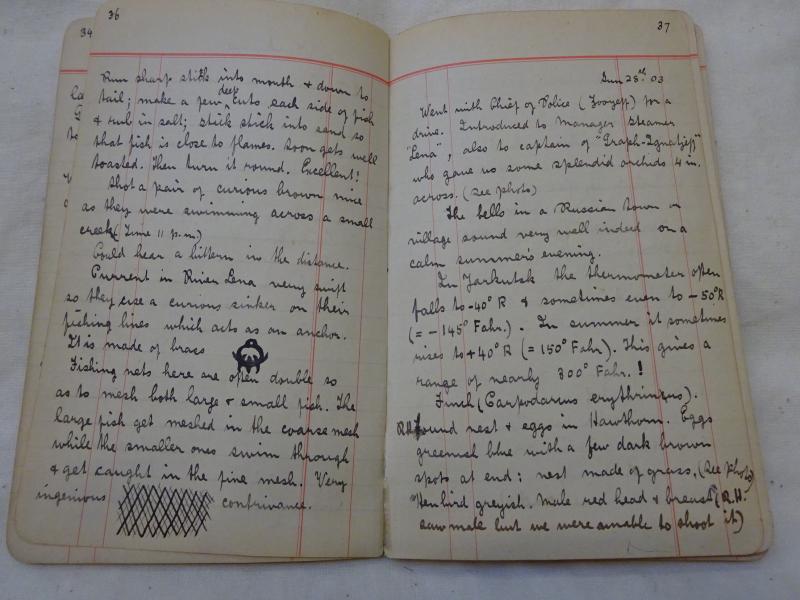 34
36
Run sharp stick into mouth & down to
tail; make a few deep cuts each side of fish
& rub in salt; stick stick into sand so
that fish is close to flames. Soon gets well
toasted. Then turn it round. Excellent!
Shot a pair of curious brown mice
as they were swimming across a small
creek (Time 11 p.m.)
Could hear a bittern in the distance.
Current in River Lena very swift
so they use a curious sinker on their
fishing lines which acts as an anchor.
It is made of brass
Fishing nets here are often double so
as to mesh both large & small fish. The
large fish get meshed in the coarse mesh
while the smaller ones swim through
& get caught in the fine mesh. Very
ingenious contrivance.
37
Jun 28th 03
Went with Chief of Police () for a
drive. Introduced to Manager Steamer
"Lena", also to captain of "Graph-Ignatjeff"
who gave us some splendid orchids 4 in.
across. (See photo)
The bells in a Russian town or
village sound very well indeed on a
calm summer's evening.
In Jarkutsk the thermometer often
falls to -40° R & sometimes even to -50° R
(= -145° Fahr.). In summer it sometimes
rises to +40° R (= 150° Fahr). This gives a
range of nearly 300° Fahr.!
Finch (Carpodacus erythrinus).
R.H. found nest & eggs in Hawthorn. Eggs
greenish blue with a few dark brown
spots at end; nest made of grass. (See photo)
Hen bird greyish. Male red head & breast (R.H.
saw male but we were unable to shoot it)